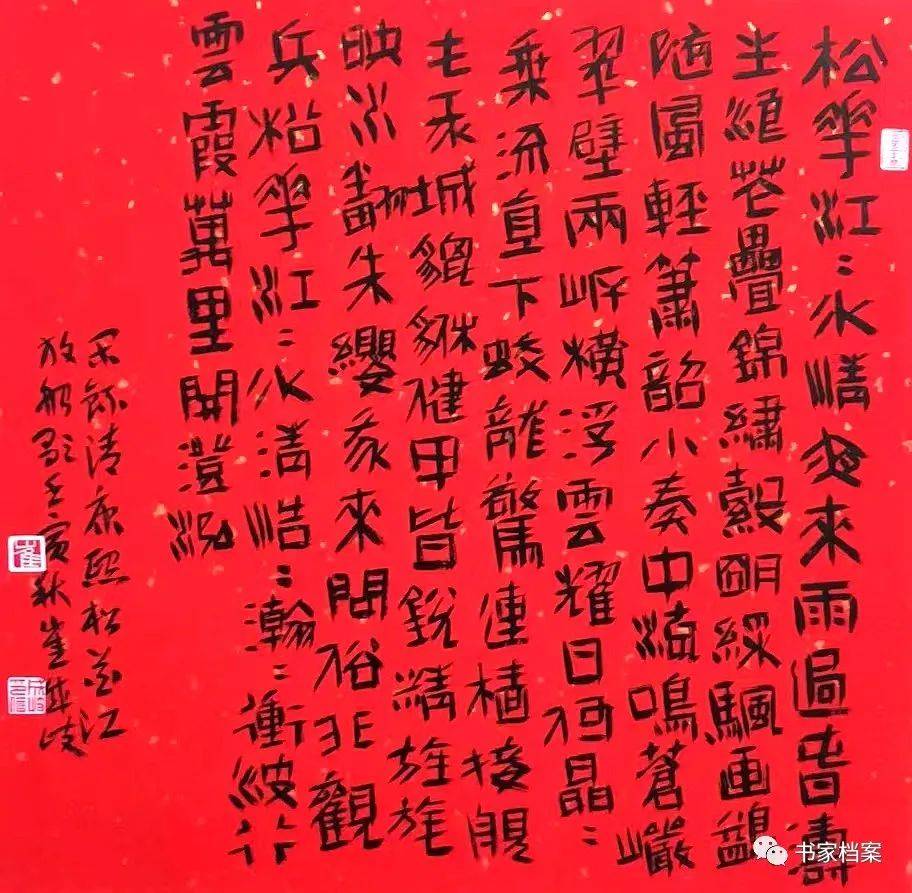 松華江〻水清夜來雨過春濤
生浪花疊錦繡縠明綵颿画鷁
隨風輕簫韶小奏中流鳴蒼巖
翠壁兩岸橫浮雲耀日何晶〻
乘流直下蛟龍驚連檣接艦
屯城貔貅健甲皆銳精旌旄
映水翻朱纓我來問俗非觀
兵松華江〻水清浩〻瀚〻衝波行
雲霞萬里開澄泓
錄清康熙松花江
放船歌壬寅秋崔岐
崔
书家档案